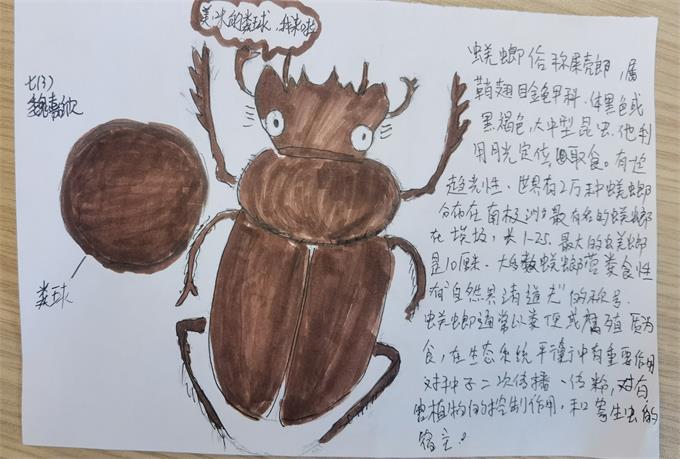 美味的粪球，我来啦
七(3)
粪球
蜣螂俗称屎壳郎，属
鞘翅目金龟甲科.体黑色或
黑褐色,大中型昆虫.他利
用月光定位取食。有
趋光性、世界有2万种蜣螂
分布在南极洲最有名的蜣螂
在埃及,长1-2.5.最大的蜣螂
是10厘米.大多数蜣螂营粪食性
有"自然界清道夫"的称号.
蜣螂通常以粪便或腐殖质为
食,在生态系统平衡中有重要作用
对种子二次传播、传粉,对有
害植物的控制作用.和寄生虫的
宿主。